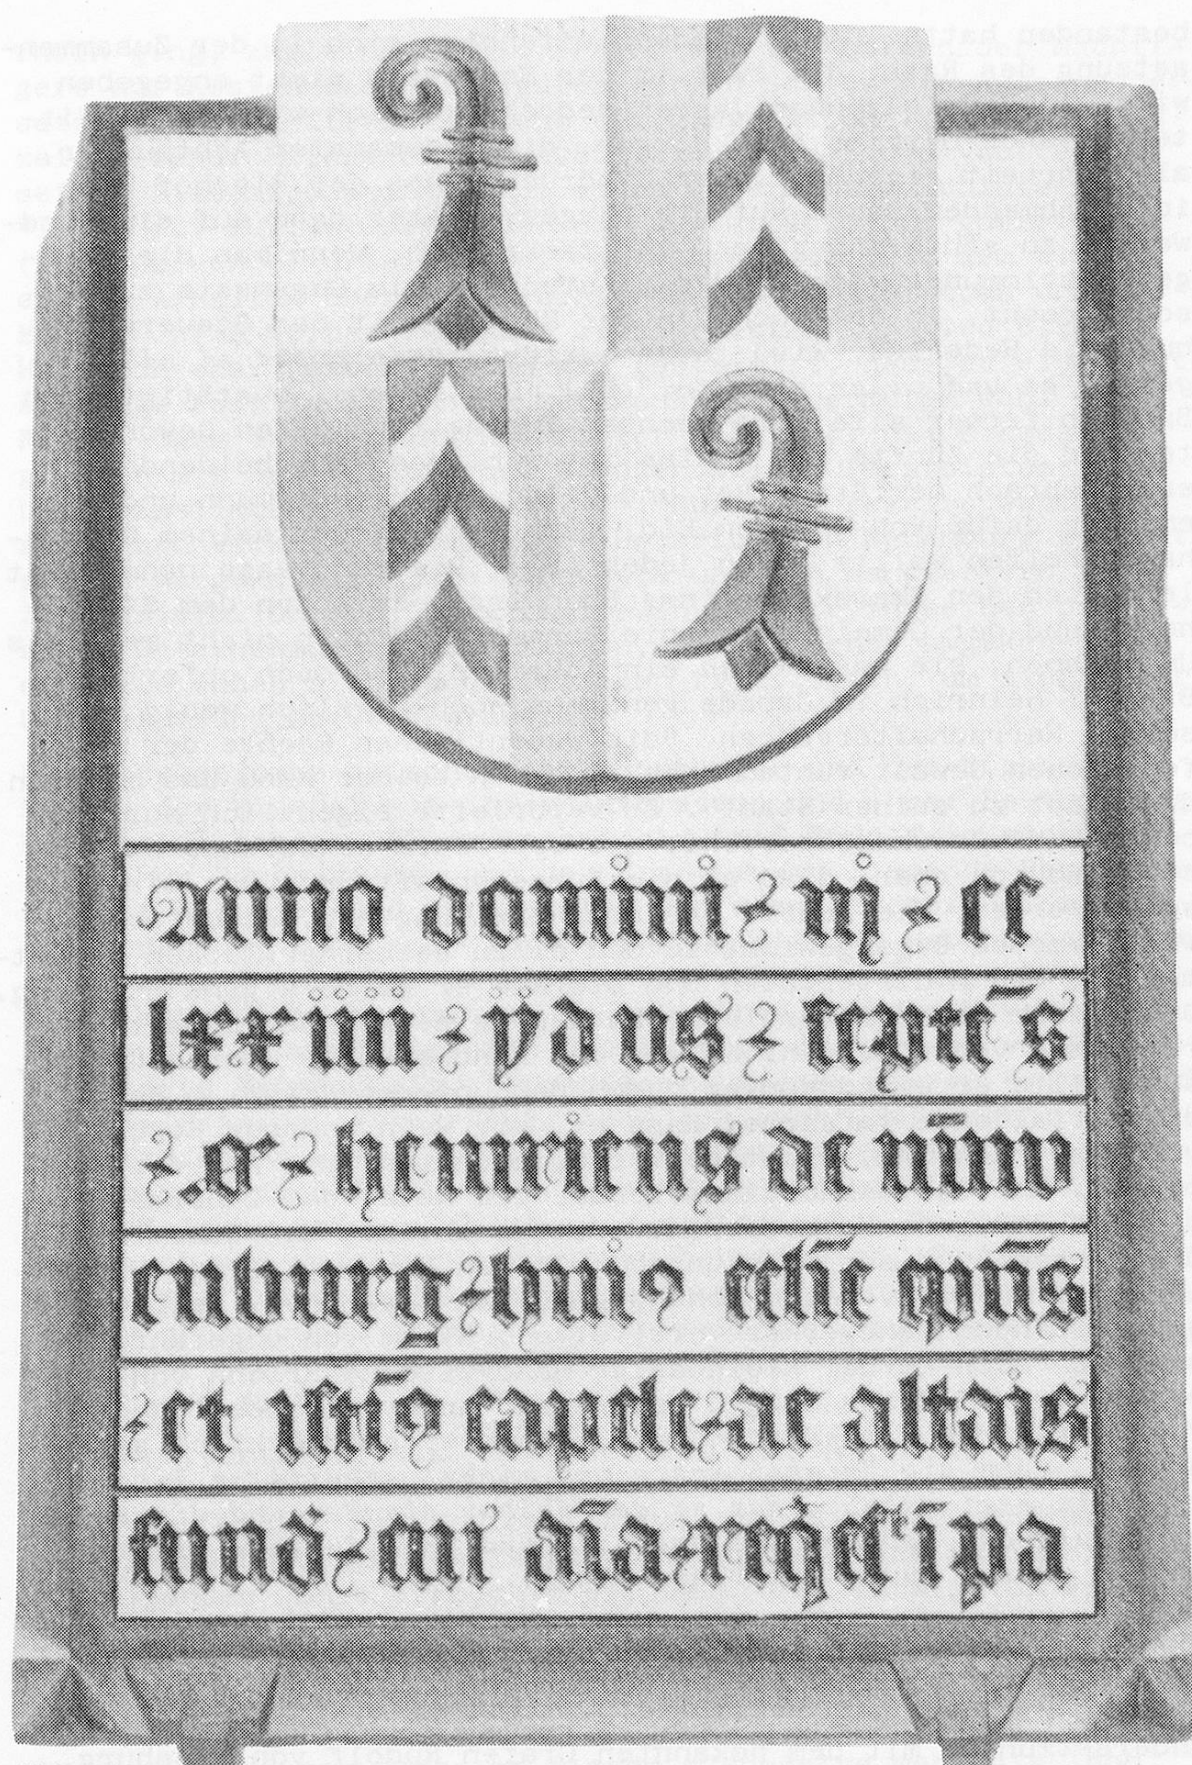 Anno domini · m · cc
lxxiiii · ydus · septēs
· o · heinricus de nūw
enburg · huiꝯ ecclīe epūs
· et istīꝯ capelle · ac altais
fund · cui aīa · reqescᵗ ī pa